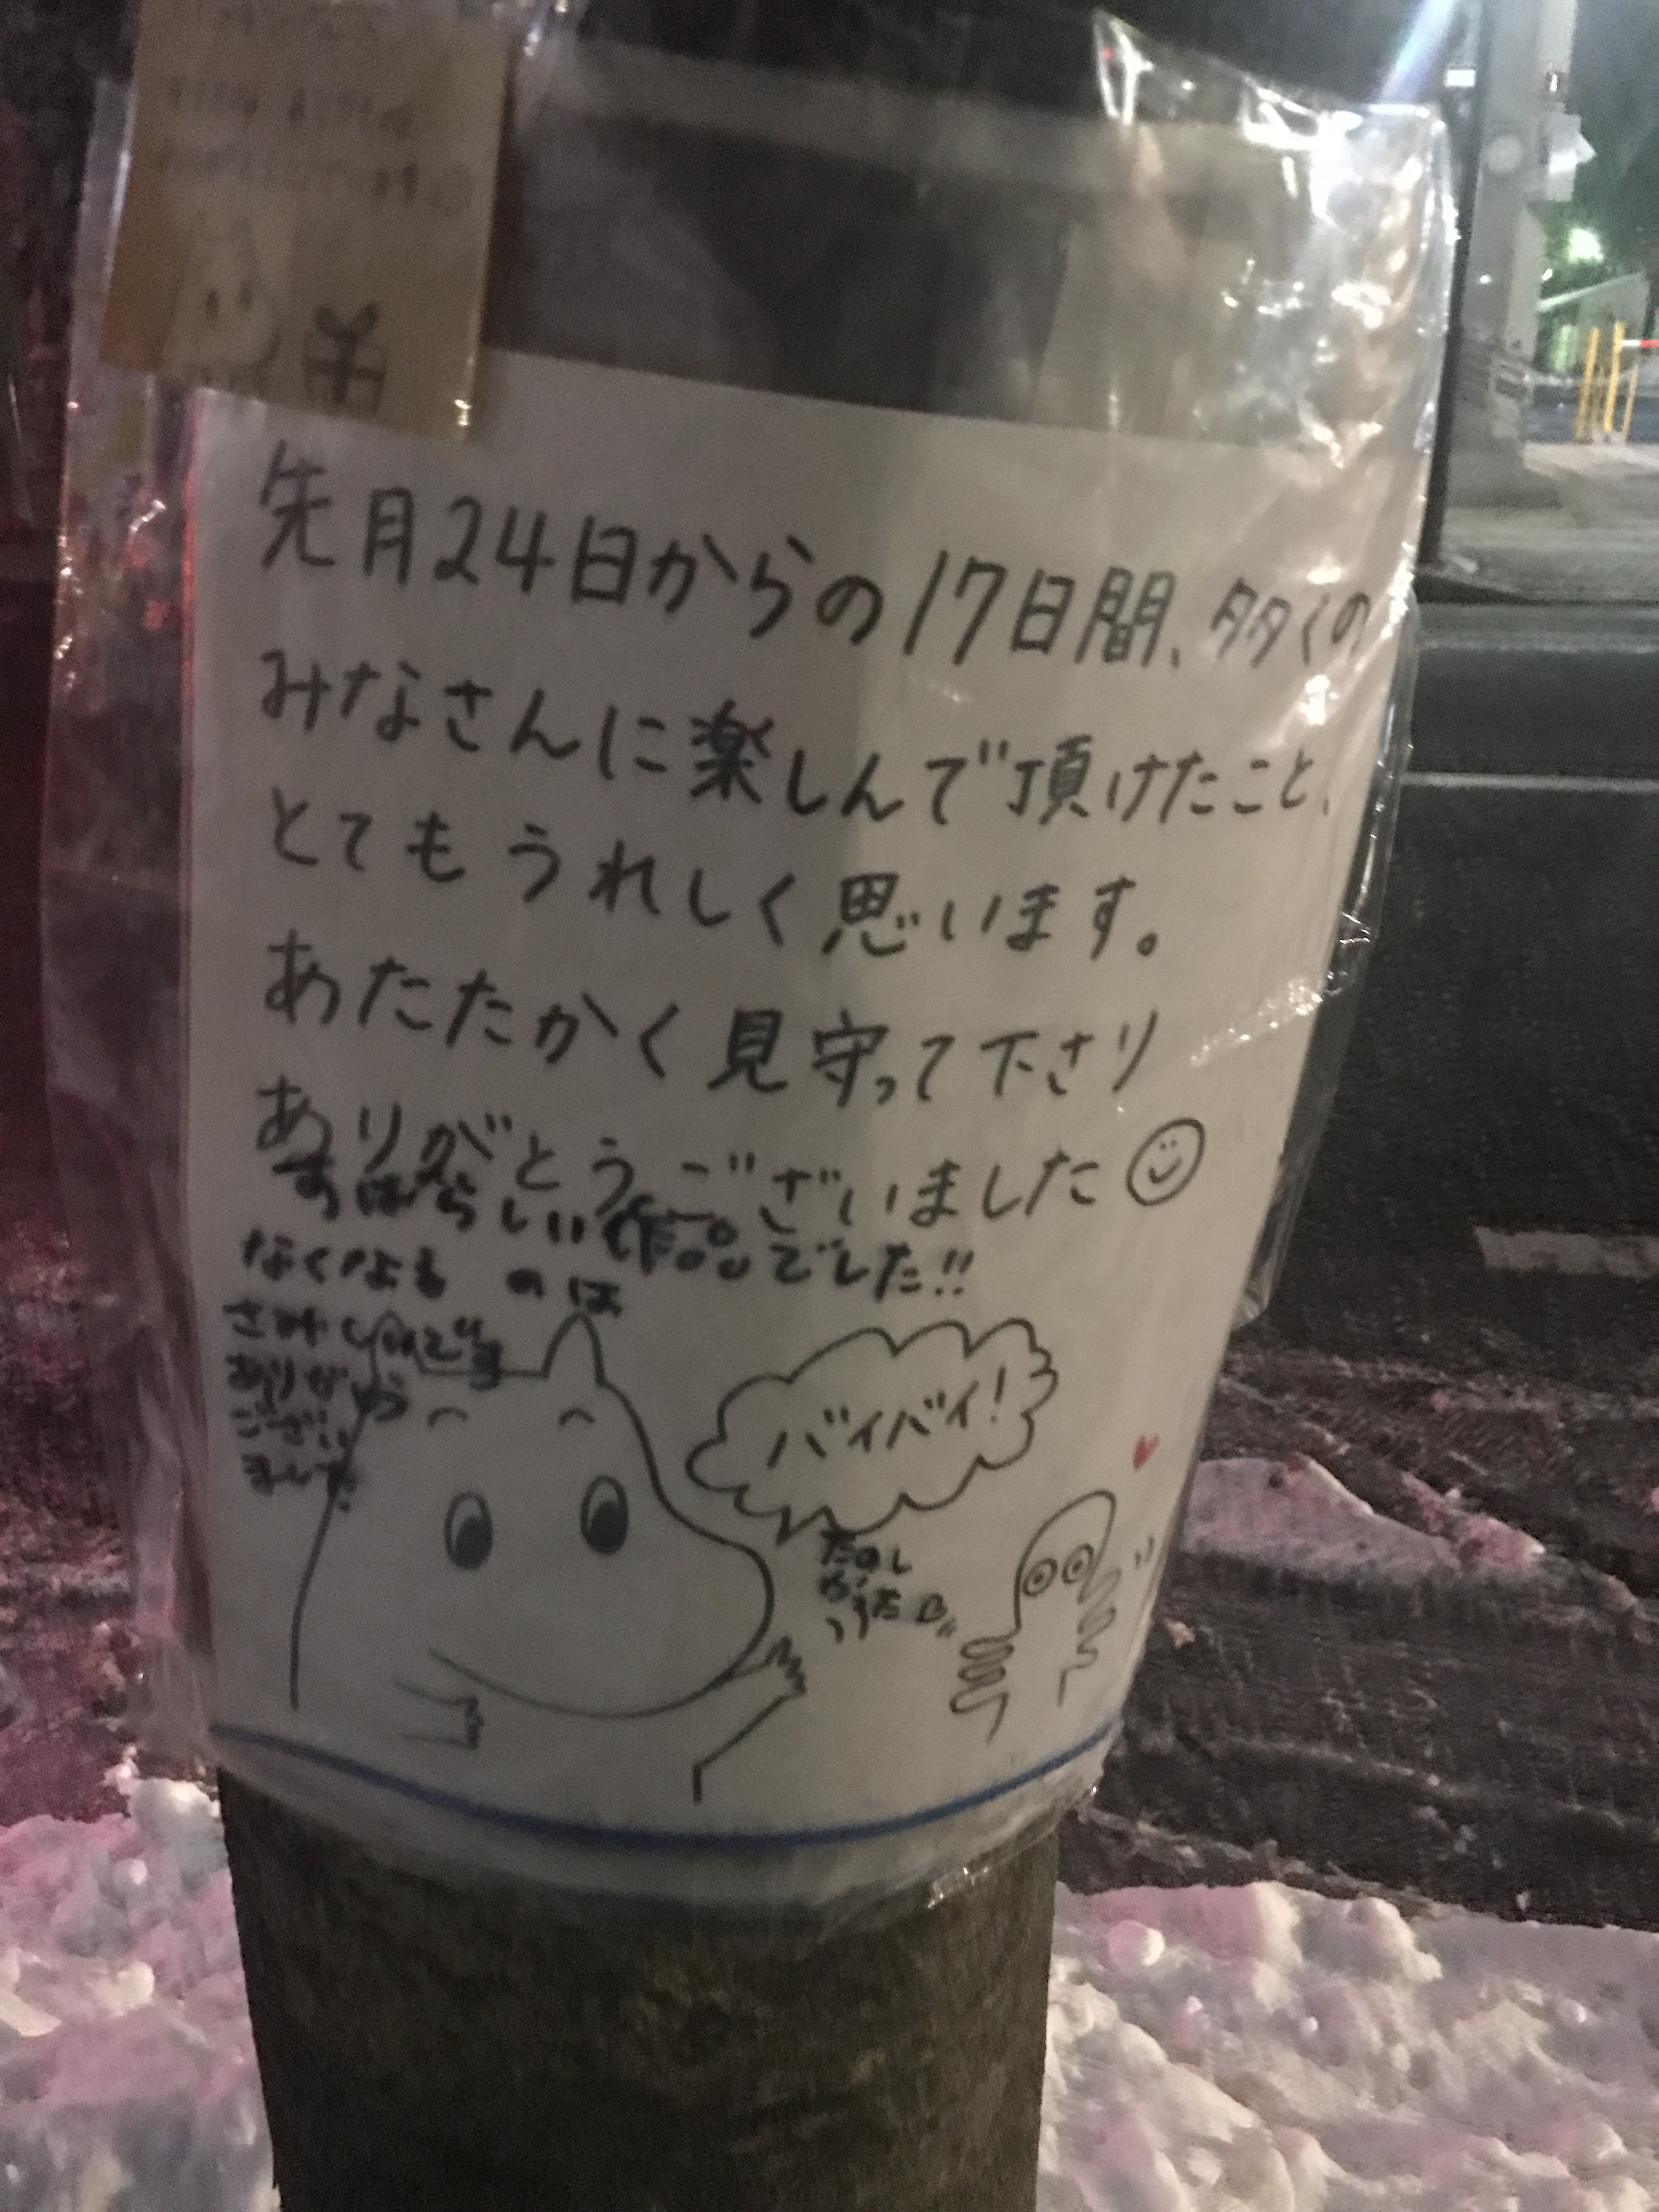 先月24日からの17日間、多くの
みなさんに楽しんで頂けたこと、
とてもうれしく思います。
あたたかく見守って下さり
ありがとうございました
すばらしい作品でした!!
なくなるのは
さみしいです
ありがとう
ござい
ました
バイバイ!
たのし
かった